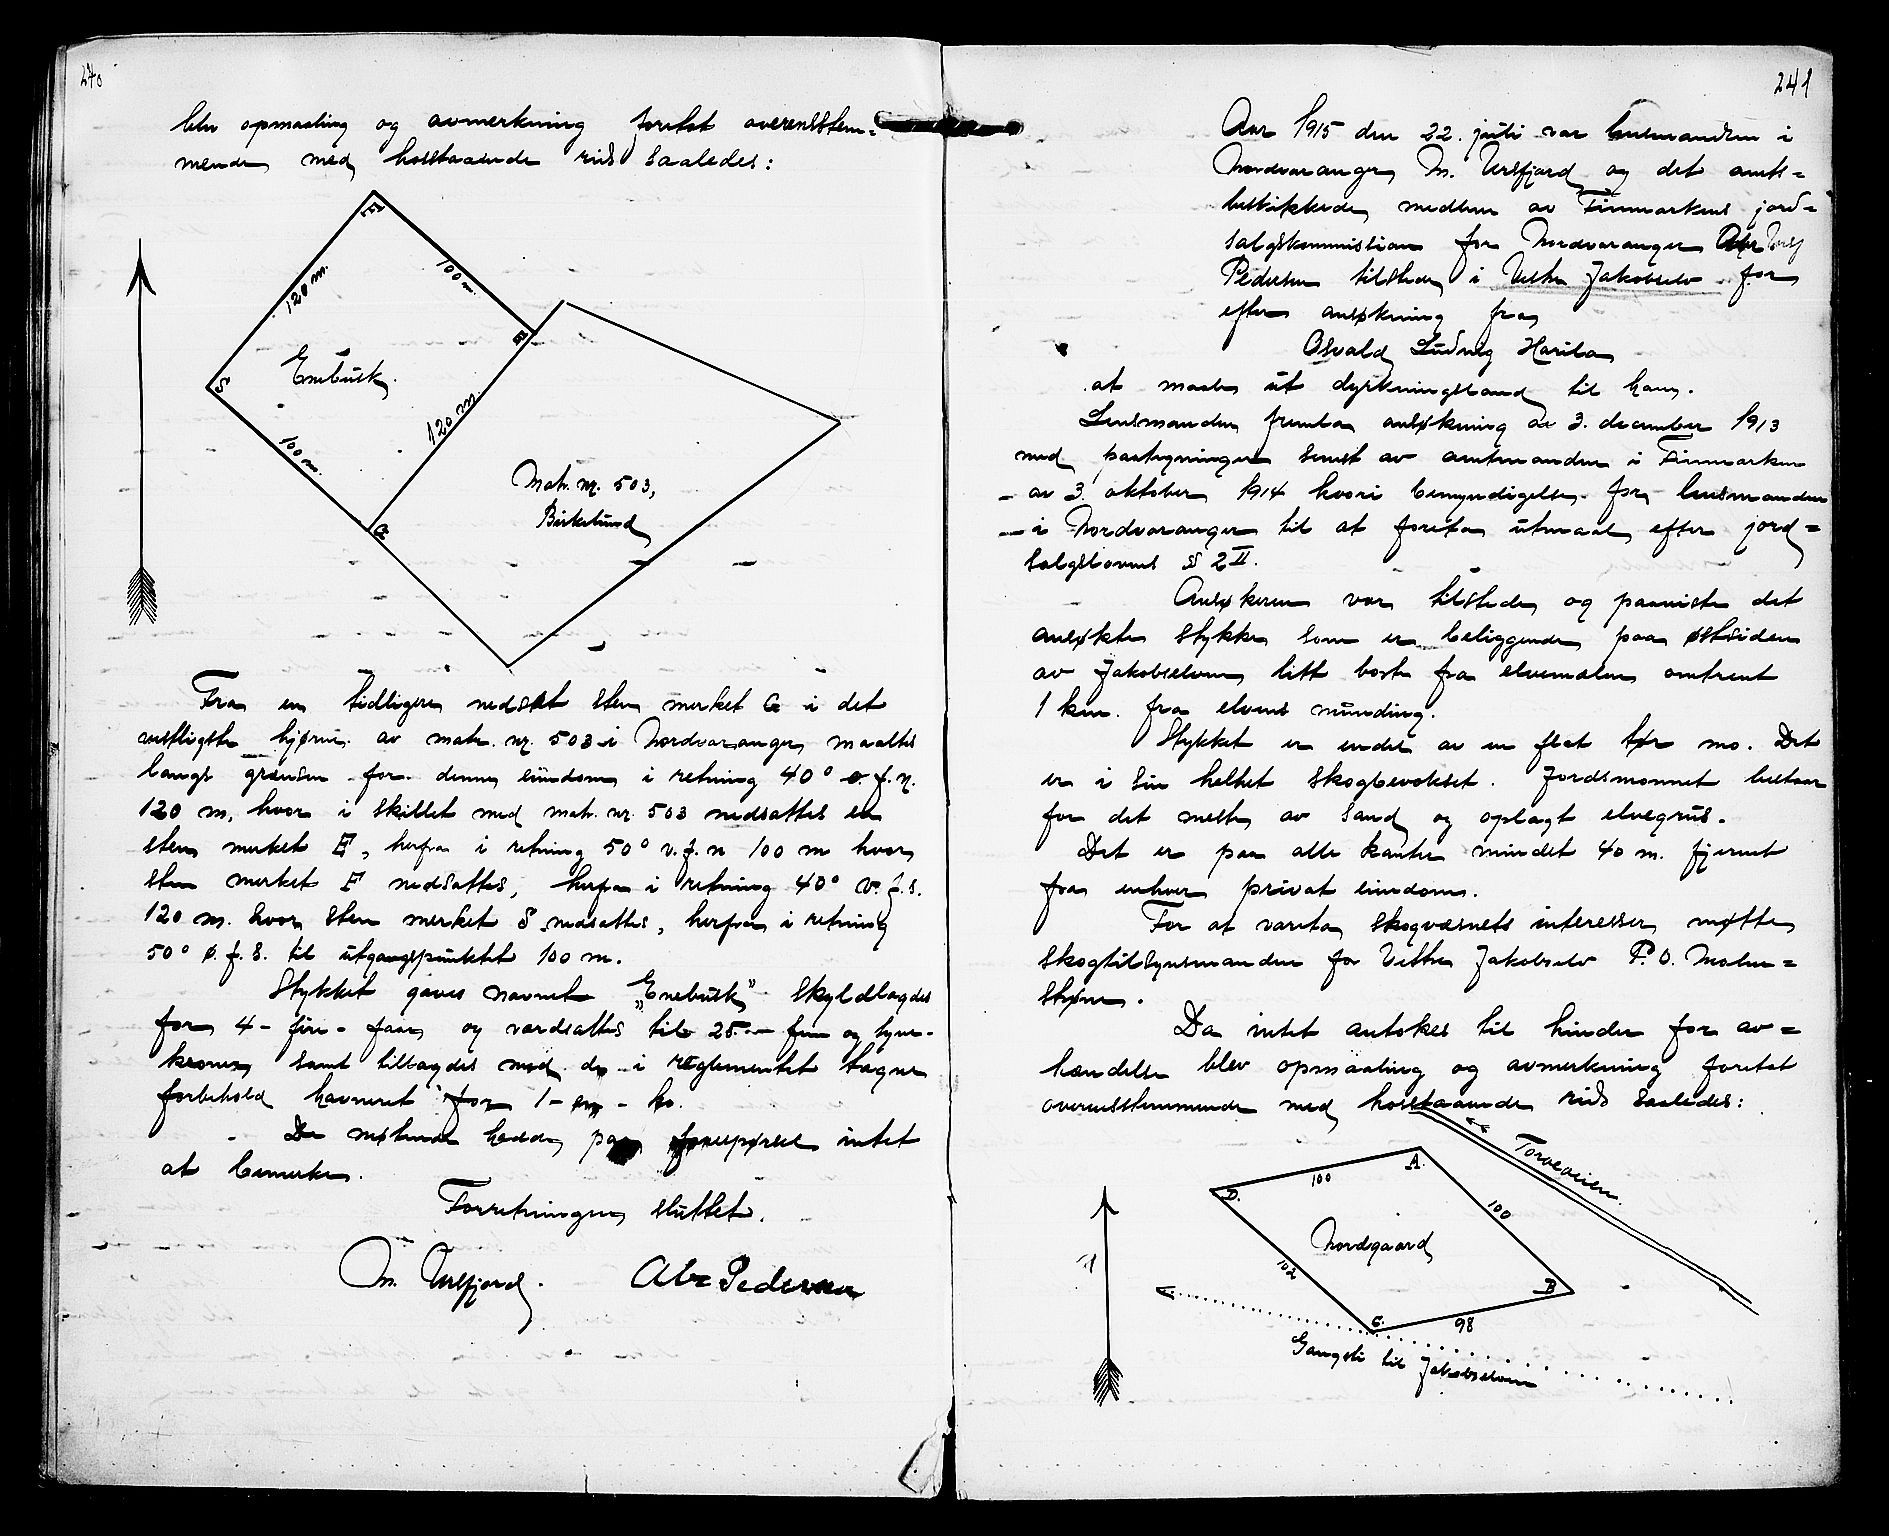 240
blev opmaaling og avmerkning foretat overensstem=
mende med hosstaaende rids saaledes:
F
120 m.
100 m.
E
S
Enebusk.
120 m.
100 m.
G
Matr. nr. 503,
Birkelund
Fra en tidligere nedsat sten merket G i det
vestligste hjørne av matr. nr. 503 i Nordvaranger maaltes
langs grænsen for denne eiendom i retning 40° o. f. n.
120 m, hvor i skillet med matr. nr. 503 nedsattes en
sten merket E, herfra i retning 50° v. f. n 100 m hvor
sten merket F nedsattes, herfra i retning 40° v. f. s.
120 m. hvor sten merket S nedsattes, herfra i retning
50° ø. f. s. til utgangspunktet 100 m.
Stykket gaves navnet „Enebusk” skyldlagdes
for 4 - fire - faar og værdsattes til 25.- fem og tyve-
kroner samt tillagdes med de i reglementet tagne
forbehold havneret for 1 - en - ko.
De møtende hadde paa forespørsel intet
at bemerke.
Forretningen sluttet.
M. Ursfjord. Abr Pedersen
241
Aar 1915 den 22. juli var lensmanden i
Nordvaranger, M. Ursfjord og det amts=
beskikkede medlem av Finmarkens jord=
salgskommission for Nordvaranger
Pedersen tilstede i Vestre Jakobselv for
efter ansøkning fra
Osvald Ludvig Harila
at maale ut dyrkningsland til ham.
Lensmanden fremla ansøkning av 3. december 1913
med paategninger senest av amtmanden i Finmarken
av 3. oktober 1914 hvori bemyndigelse for lensmanden
i Nordvaranger til at foreta utmaal efter jord=
salgslovens § 2 II.
Ansøkeren var tilstede og paaviste det
ansøkte stykke som er beliggende paa østsiden
av Jakobselven litt bort fra elvemælen omtrent
1 km. fra elvens munding.
Stykket er endel av en flat tør mo. Det
er i sin helhet skogbevokset. Jordsmonnet bestaar
for det meste av sand og oplagt elvegrus.
Det er paa alle kanter mindst 40 m. fjernet
fra enhver privat eiendom.
For at vareta skogvæsnets interesser møtte
skogtilsynsmanden for Vestre Jakobselv P. O. Malm=
strøm.
Da intet antokes til hinder for av=
hændelse blev opmaaling og avmerkning foretat
overensstemmende med hosstaaende rids saaledes:
Torvveien
A.
D.
100
100
Nordgaard
102
B
C.
98
Gangsti til Jakobselven